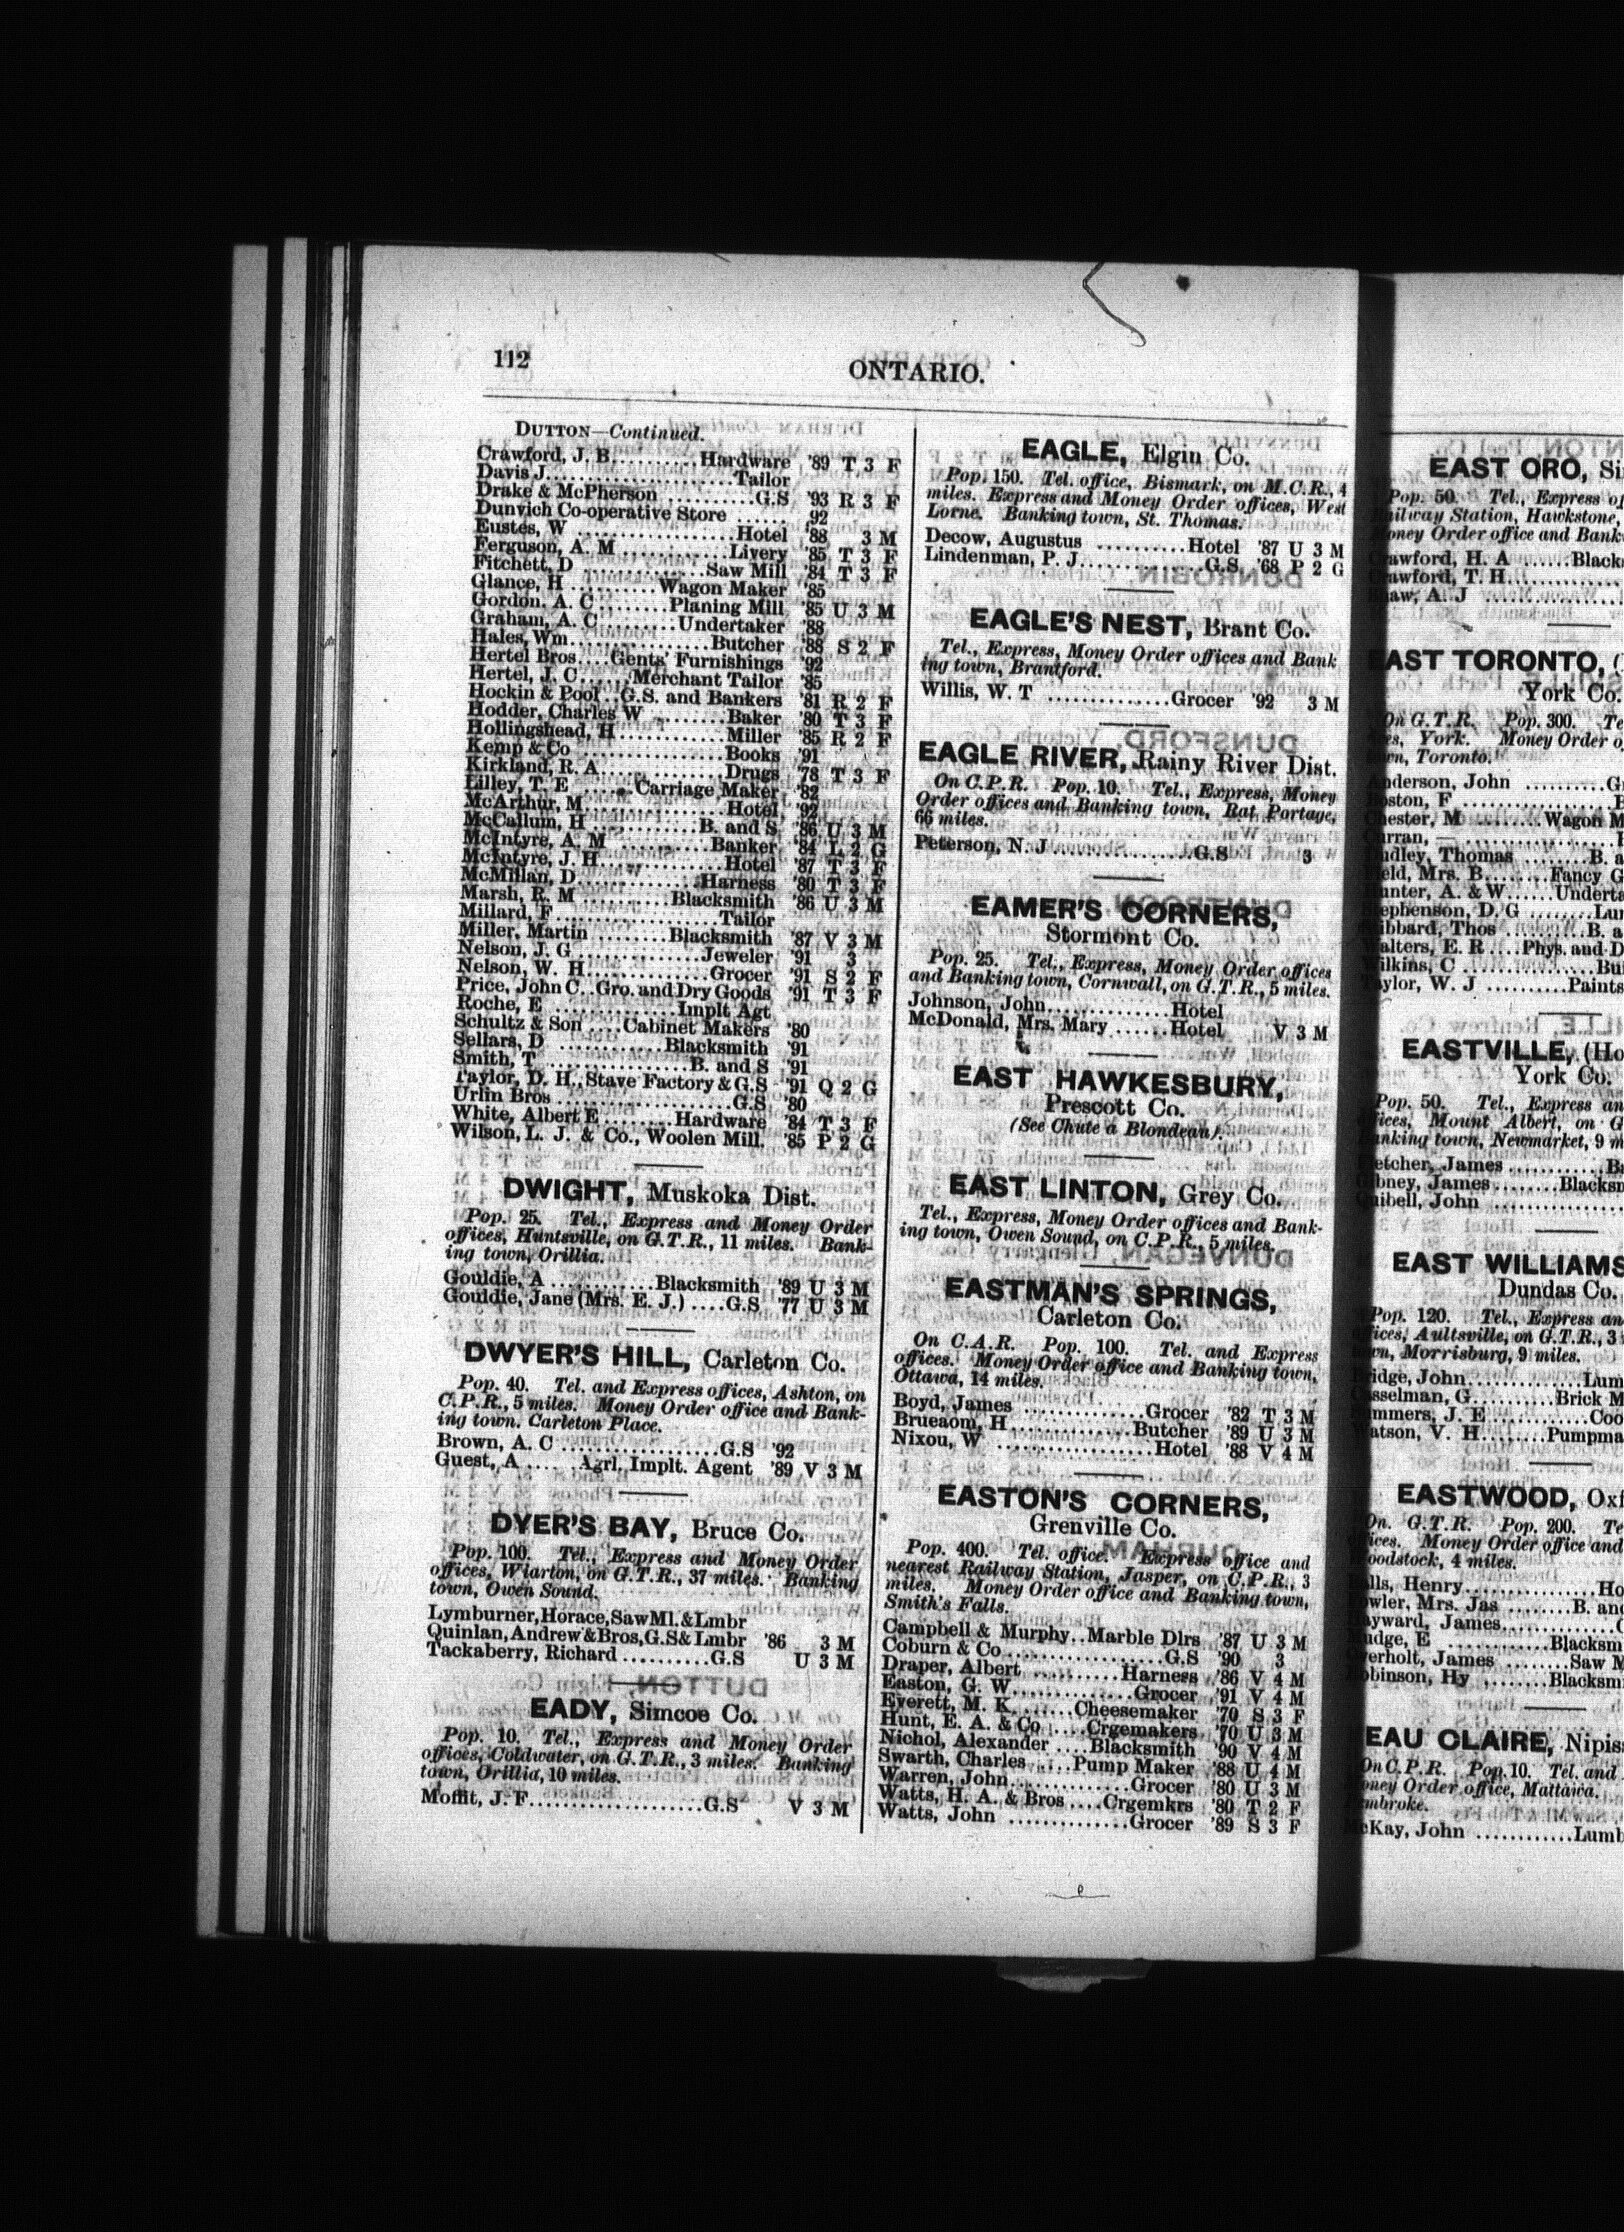 112
ONTARIO.
DUTTON—Continued.
Crawford, J. B..........Hardware '89 T 3 F
Davis J....................Tailor
Drake & McPherson ..........G.S '93 R 3 F
Dunwich Co-operative Store ...... '92
Eustes, W ..................Hotel '88 3 M
Ferguson, A. M ............Livery '85 T 3 F
Fitchett, D ..............Saw Mill '84 T 3 F
Glance, H ..........Wagon Maker '85
Gordon. A. C........Planing Mill '85 U 3 M
Graham, A. C.........Undertaker '88
Hales, Wm................Butcher '88 S 2 F
Hertel Bros....Gents' Furnishings '92
Hertel, J. C......Merchant Tailor '85
Hockin & Pool..G.S. and Bankers '81 R 2 F
Hodder, Charles W .........Baker '80 T 3 F
Hollingshead, H............Miller '85 R 2 F
Kemp & Co .................Books '91
Kirkland, R. A..............Drugs '78 T 3 F
Lilley, T. E .......Carriage Maker '82
McArthur, M................Hotel '92
McCallum, H .............B. and S '86 U 3 M
McIntyre, A. M ............Banker '84 L 2 G
McIntyre, J. H..............Hotel '87 T 3 F
McMillan, D..............Harness '80 T 3 F
Marsh, R. M ..........Blacksmith '86 U 3 M
Millard, F..................Tailor
Miller. Martin ........Blacksmith '87 V 3 M
Nelson, J. G ..............Jeweler '91 3
Nelson, W. H..............Grocer '91 S 2 F
Price, John C..Gro. and Dry Goods '91 T 3 F
Roche, E ...............Implt Agt
Schultz & Son ....Cabinet Makers '80
Sellars, D ............Blacksmith '91
Smith, T ................B. and S '91
Taylor, D. H., Stave Factory & G.S '91 Q 2 G
Urlin Bros ...................G.S '80
White, Albert E ........Hardware '84 T 3 F
Wilson, L. J. & Co., Woolen Mill. '85 P 2 G
DWIGHT, Muskoka Dist.
Pop. 25. Tel., Express and Money Order
offices, Huntsville, on G.T.R., 11 miles. Bank-
ing town, Orillia.
Gouldie, A ............Blacksmith '89 U 3 M
Gouldie, Jane (Mrs. E. J.) ....G.S '77 U 3 M
DWYER'S HILL, Carleton Co.
Pop. 40. Tel. and Express offices, Ashton, on
C.P.R., 5 miles. Money Order office and Bank-
ing town. Carleton Place.
Brown, A. C .................G.S '92
Guest, A ......Agrl. Implt. Agent '89 V 3 M
DYER'S BAY, Bruce Co.
Pop. 100. Tel., Express and Money Order
offices, Wiarton, on G.T.R., 37 miles. Banking
town, Owen Sound.
Lymburner, Horace, Saw Ml. & Lmbr
Quinlan, Andrew & Bros, G.S & Lmbr '86 3 M
Tackaberry, Richard ..........G.S U 3 M
EADY, Simcoe Co.
Pop. 10. Tel., Express and Money Order
offices, Coldwater, on G.T.R., 3 miles. Banking
town, Orillia, 10 miles.
Moffit, J. F...................G.S V 3 M
EAGLE, Elgin Co.
Pop. 150. Tel. office, Bismark, on M.C.R., 4
miles. Express and Money Order offices, West
Lorne. Banking town, St. Thomas.
Decow, Augustus ..........Hotel '87 U 3 M
Lindenman, P. J..............G.S. '68 P 2 G
EAGLE'S NEST, Brant Co.
Tel., Express, Money Order offices and Bank
ing town, Brantford.
Willis, W. T ..............Grocer '92 3 M
EAGLE RIVER, Rainy River Dist.
On C.P.R. Pop. 10. Tel., Express, Money
Order offices and Banking town, Rat Portage,
66 miles.
Peterson, N. J................G.S 3
EAMER'S CORNERS,
Stormont Co.
Pop. 25. Tel., Express, Money Order offices
and Banking town, Cornwall, on G.T.R., 5 miles.
Johnson, John..............Hotel
McDonald, Mrs. Mary ......Hotel V 3 M
EAST HAWKESBURY,
Prescott Co.
(See Chute a Blondeau).
EAST LINTON, Grey Co.
Tel., Express, Money Order offices and Bank-
ing town, Owen Sound, on C.P.R., 5 miles.
EASTMAN'S SPRINGS,
Carleton Co.
On C.A.R. Pop. 100. Tel. and Express
offices. Money Order office and Banking town,
Ottawa, 14 miles.
Boyd, James ..............Grocer '82 T 3 M
Brueaom, H ..............Butcher '89 U 3 M
Nixou, W ..................Hotel '88 V 4 M
EASTON'S CORNERS,
Grenville Co.
Pop. 400. Tel. office. Express office and
nearest Railway Station, Jasper, on C.P.R., 3
miles. Money Order office and Banking town,
Smith's Falls.
Campbell & Murphy..Marble Dlrs '87 U 3 M
Coburn & Co..................G.S '90 3
Draper, Albert ...........Harness '86 V 4 M
Easton, G. W..............Grocer '91 V 4 M
Everett, M. K.......Cheesemaker '70 S 3 F
Hunt, E. A. & Co .....Crgemakers '70 U 3 M
Nichol, Alexander ....Blacksmith '90 V 4 M
Swarth, Charles .....Pump Maker '88 U 4 M
Warren, John..............Grocer '80 U 3 M
Watts, H. A. & Bros ....Crgemkrs '80 T 2 F
Watts, John ..............Grocer '89 S 3 F
EAST ORO,
Pop. 50. Tel., Express
Railway Station, Hawkstone,
Money Order office and
Crawford, H. A ......
Crawford, T. H............
Shaw, A. J ..............
EAST TORONTO,
York Co.
On G.T.R. Pop. 300.
York. Money Order
Toronto.
Anderson, John ..........
Boston, F ..............
Chester, M .........Wagon
Curran, — ..............
Dudley, Thomas ........B.
Field, Mrs. B........Fancy
Hunter, A. & W......
Stephenson, D. G ........
Hibbard, Thos ..........B.
Walters, E. R....Phys. and
Wilkins, C ..............
Taylor, W. J ..........Paints
EASTVILLE,
York Co.
Pop. 50. Tel., Express
offices, Mount Albert, on
Banking town, Newmarket, 9
Fletcher, James ...........
Gibney, James........
Quibell, John ..............
EAST
Dundas Co.
Pop. 120. Tel., Express
offices, Aultsville, on G.T.R., 3
town, Morrisburg, 9 miles.
Bridge, John..............
Casselman, G..........Brick
Summers, J. E............
Watson, V. H........
EASTWOOD,
On G.T.R. Pop. 200.
offices. Money Order office and
Woodstock, 4 miles.
Henry................
Fowler, Mrs. Jas ........B.
Hayward, James............
Mudge, E ............
Overholt, James ........Saw
Robinson, Hy ........
EAU CLAIRE,
On C.P.R. Pop. 10. Tel. and
Money Order office, Mattawa.
Pembroke.
McKay, John ............